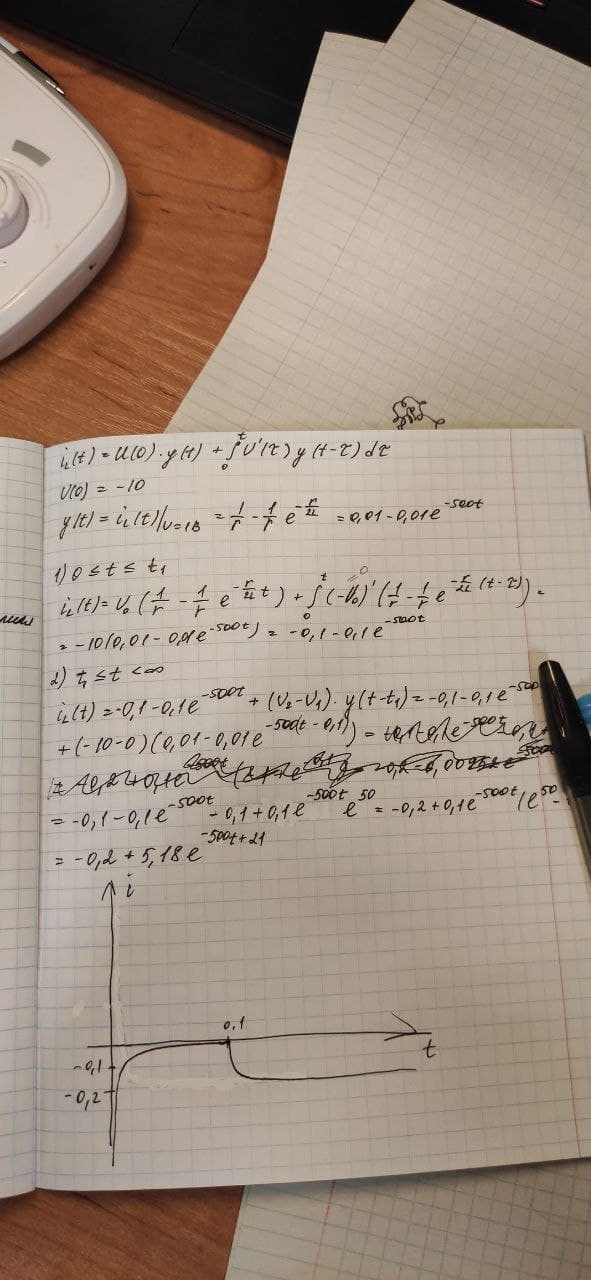 i_L(t) = U(0) · y(t) + ∫₀ᵗ U'(τ) y(t-τ) dτ
U(0) = -10
y(t) = i_L(t)/U=1В = 1/r - 1/r e^(-r/2L) = 0,01 - 0,01e^(-500t)
1) 0 ≤ t ≤ t₁
i_L(t) = U₀ (1/r - 1/r e^(-r/2L t)) + ∫₀ᵗ (-U₀)' (1/r - 1/r e^(-r/2L (t-τ))) =
= -10(0,01 - 0,01e^(-500t)) = -0,1 - 0,1e^(-500t)
2) t₁ ≤ t < ∞
i_L(t) = -0,1 - 0,1e^(-500t) + (U₂-U₁) · y(t-t₁) = -0,1 - 0,1e^(-500
+ (-10-0)(0,01 - 0,01e^(-500(t-0,1)) =
= -0,1 - 0,1e^(-500t) - 0,1 + 0,1e^(-500t) e^50 = -0,2 + 0,1e^(-500t) (e^50 -
= -0,2 + 5,18e^(-500t+21)
i
0,1
t
-0,1
-0,2